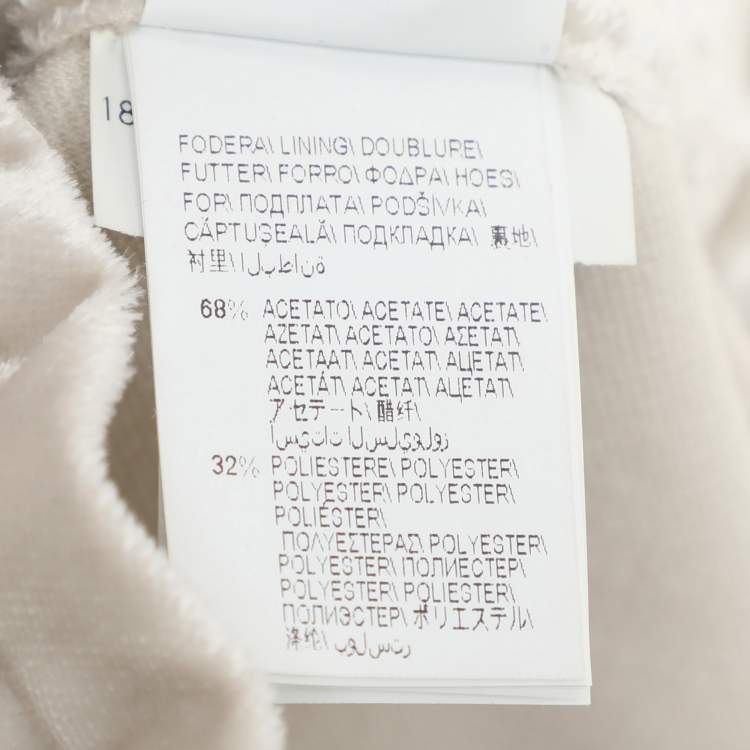 18
FODERA\ LINING\ DOUBLURE\
FUTTER\ FORRO\ ΦΟΔΡΑ\ HOES\
FOR\ ПОДПЛАТА\ PODŠÍVKA\
CĂPTUŞEALĂ\ ПОДКЛАДКА\ 裏地\
衬里\ البطانة
68% ACETATO\ ACETATE\ ACETATE\
AZETAT\ ACETATO\ ΑΣΕΤΑΤ\
ACETAAT\ ACETAT\ АЦЕТАТ\
ACETÁT\ ACETAT\ АЦЕТАТ\
アセテート\ 醋纤\
اسيتات السليولوز
32% POLIESTERE\ POLYESTER\
POLYESTER\ POLYESTER\
POLIÉSTER\
ΠΟΛΥΕΣΤΕΡΑΣ\ POLYESTER\
POLYESTER\ ПОЛИЕСТЕР\
POLYESTER\ POLIESTER\
ПОЛИЭСТЕР\ ポリエステル\
涤纶\ بولستر